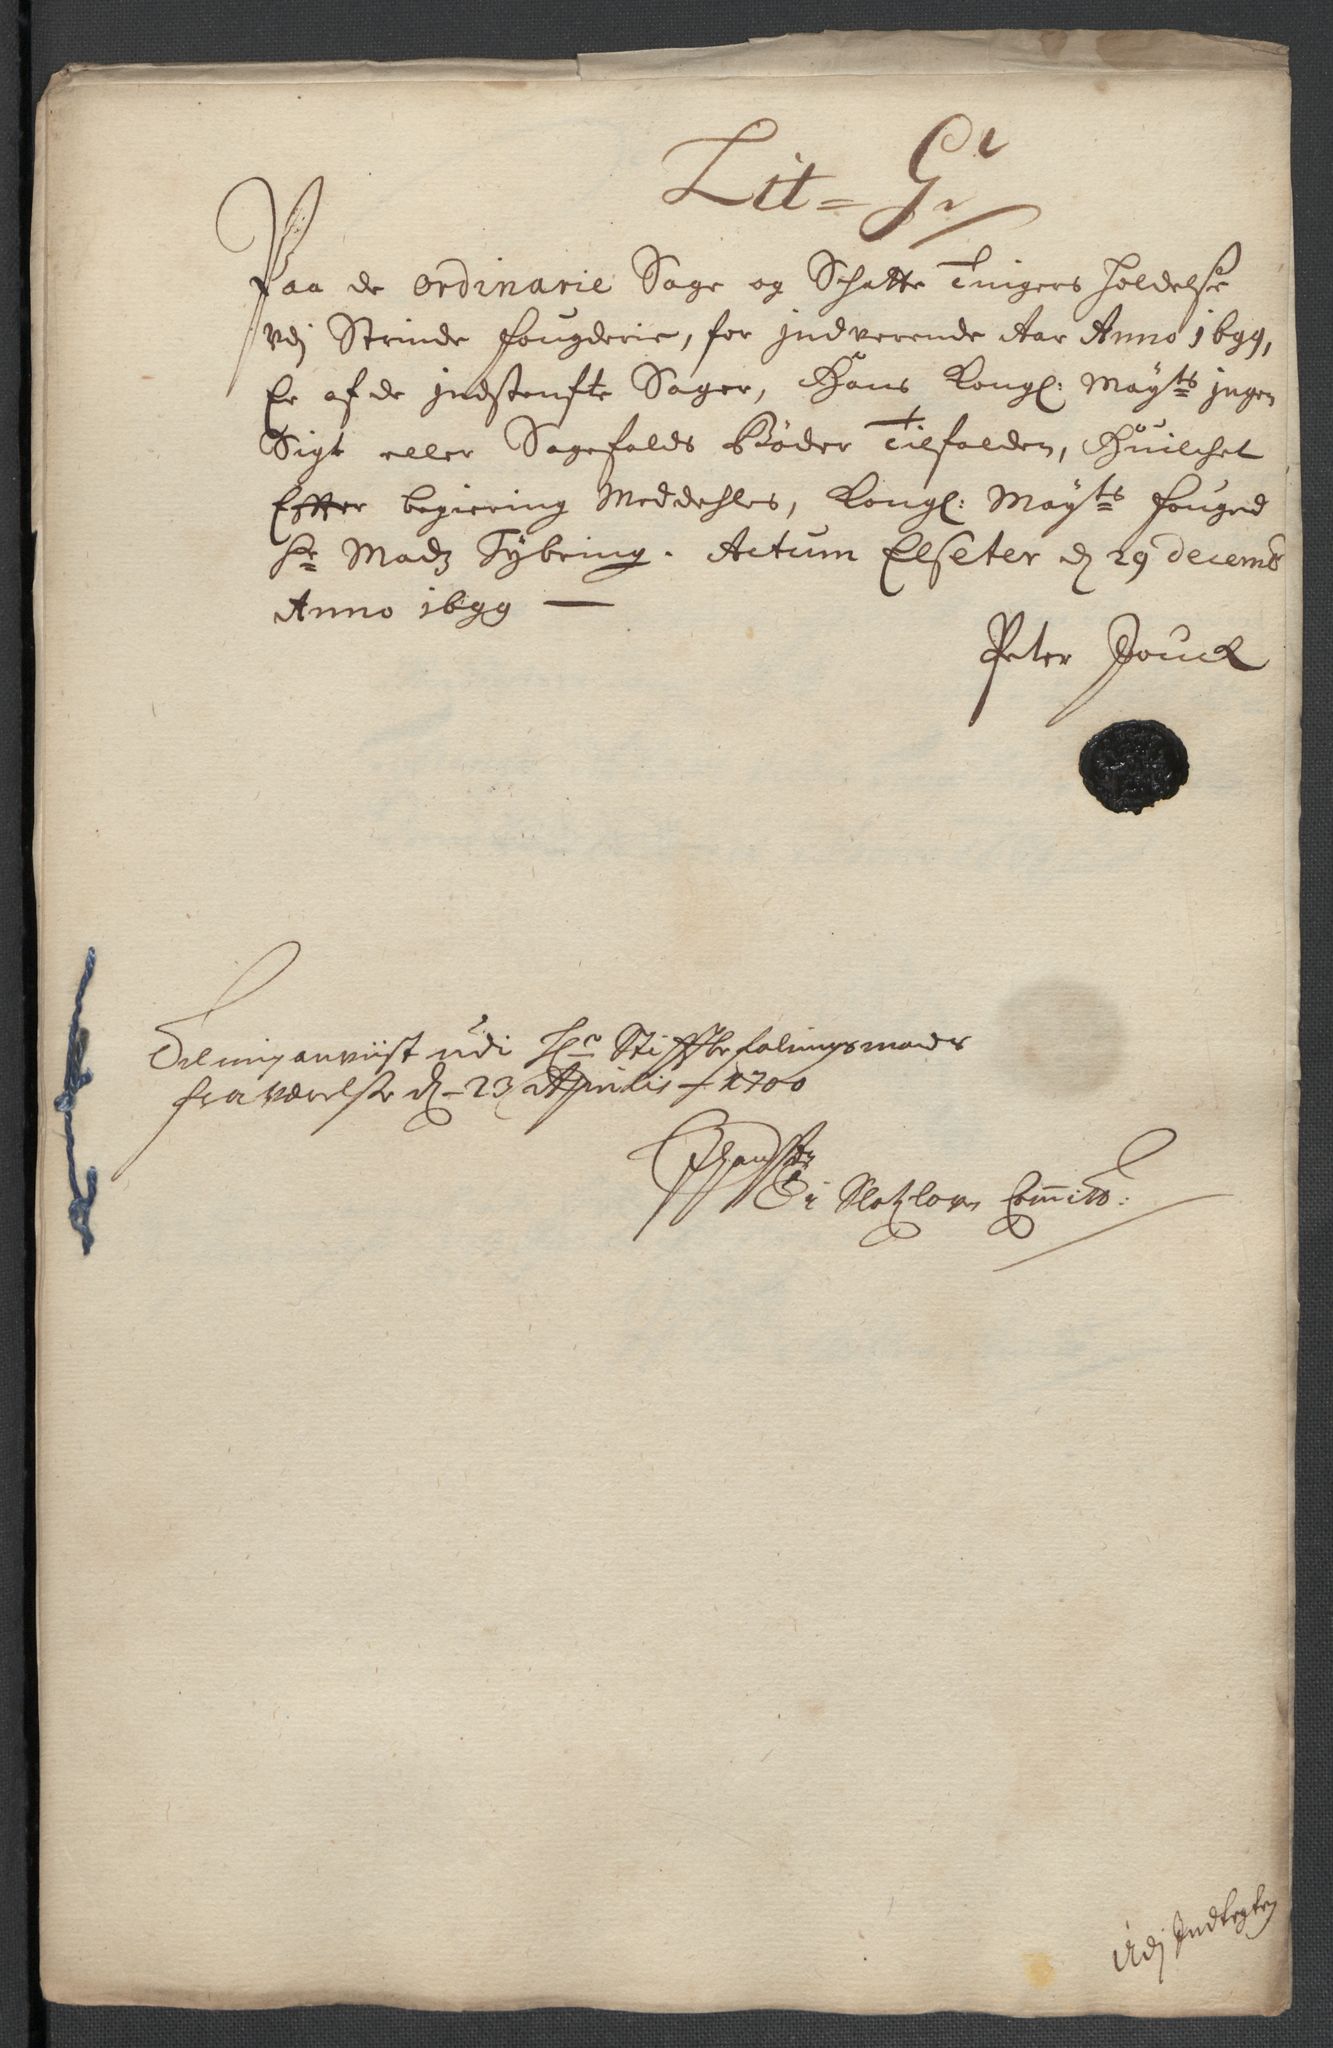 Lit = G
Paa de ordinarie Sage og Schatte Tingers holdelse
vdj Strinde fougderie, for jndverende Aar Anno 1699,
Er af de jndstenfte Sager, Hans Kongl: Mayts jngen
Sigt eller Sagefalds Bøder Tilfalden, Huilchet
Effter begiering Meddehles, Kongl: Mayts fouged
Sr Madz Tÿbring. Actum Elseter d 29 decemb
Anno 1699 —
Peter Jouck
Til mig anviist udi Hr Stifftbefalingsmands
fraværelse d. 23 Aprilis 1700
Slotzlovn Committ:
Udj Indtegten